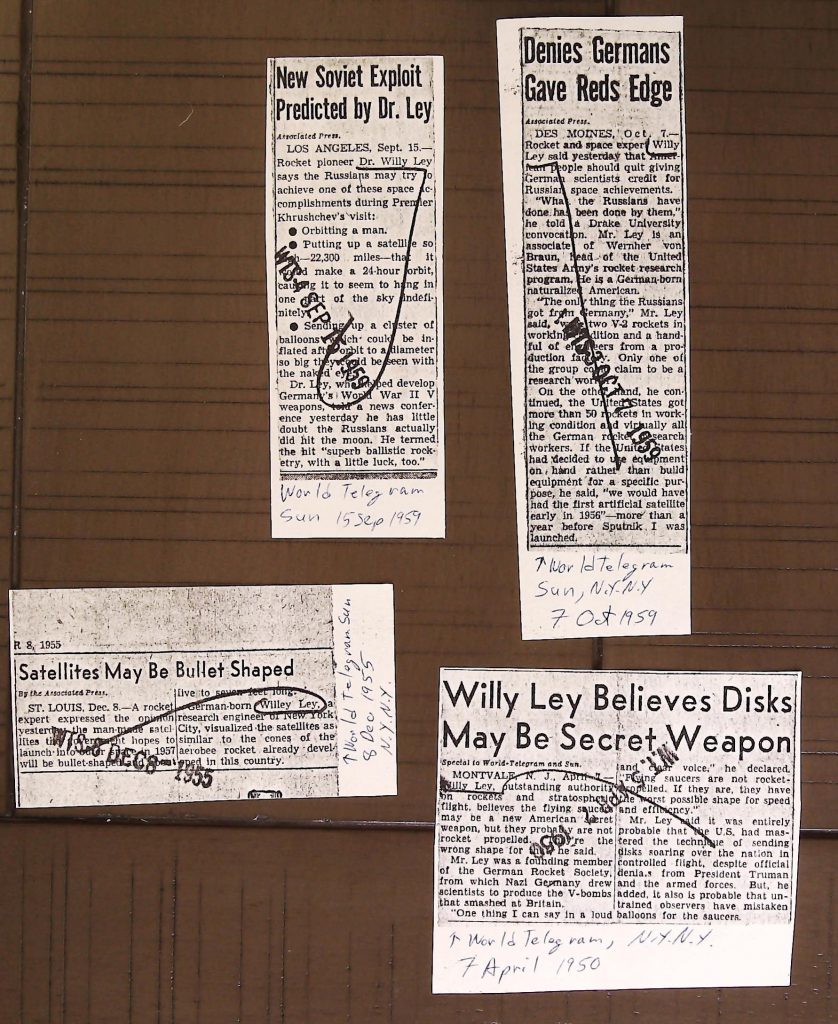 New Soviet Exploit
Predicted by Dr. Ley
Associated Press.
LOS ANGELES, Sept. 15.—
Rocket pioneer Dr. Willy Ley
says the Russians may try
achieve one of these space ac-
complishments during Premier
Khrushchev's visit:
● Orbiting a man.
● Putting up a satellite so
22,300 miles—that it
make a 24-hour orbit,
it to seem to hang in
one of the sky indefi-
nitely.
● Sending up a cluster of
balloons which could be in-
flated after orbit to a diameter
so big they could be seen with
the naked
Dr. Ley, who helped develop
Germany's World War II V
weapons, told a news confer-
ence yesterday he has little
doubt the Russians actually
did hit the moon. He termed
the hit "superb ballistic rock-
etry, with a little luck, too."
WTS-4 SEP 15 1959
World Telegram
Sun 15 Sep 1959
Denies Germans
Gave Reds Edge
Associated Press.
DES MOINES, Oct. 7.—
Rocket and space expert Willy
Ley said yesterday that Amer-
ican people should quit giving
German scientists credit for
Russian space achievements.
"What the Russians have
done has been done by them,"
he told a Drake University
convocation. Mr. Ley is an
associate of Wernher von
Braun, head of the United
States Army's rocket research
program. He is a German-born
naturalized American.
"The only thing the Russians
got from Germany," Mr. Ley
said, two V-2 rockets in
working condition and a hand-
ful of from a pro-
duction Only one of
the group claim to be a
research
On the other hand, he con-
tinued, the United States got
more than 50 rockets in work-
ing condition and virtually all
the German rocket research
workers. If the United States
had decided to use equipment
on hand rather than build
equipment for a specific pur-
pose, he said, "we would have
had the first artificial satellite
early in 1956"—more than a
year before Sputnik I was
launched.
OCT 1959
↑ World Telegram
Sun, N.Y.N.Y
7 Oct 1959
R 8, 1955
Satellites May Be Bullet Shaped
By the Associated Press.
ST. LOUIS, Dec. 8.—A rocket
expert expressed the opinion
yesterday the man-made satel-
lites the government hopes to
launch into 1957
will be bullet-shaped
five to seven feet long.
German-born Willey Ley, a
research engineer of New York
City, visualized the satellites as
similar to the cones of the
aerobee rocket already devel-
oped in this country.
DEC 8 - 1955
↑ World Telegram Sun
8 Dec 1955
N.Y.N.Y.
Willy Ley Believes Disks
May Be Secret Weapon
Special to World-Telegram and Sun.
MONTVALE, N. J., April 7.—
Willy Ley, outstanding authority
on rockets and stratospheric
flight, believes the flying saucers
may be a new American secret
weapon, but they probably are not
rocket propelled. They're the
wrong shape for he said.
Mr. Ley was a founding member
of the German Rocket Society,
from which Nazi Germany drew
scientists to produce the V-bombs
that smashed at Britain.
"One thing I can say in a loud
and clear voice," he declared.
"Flying saucers are not rocket-
propelled. If they are, they have
the worst possible shape for speed
and efficiency."
Mr. Ley said it was entirely
probable that the U.S. had mas-
tered the technique of sending
disks soaring over the nation in
controlled flight, despite official
denials from President Truman
and the armed forces. But, he
added, it also is probable that un-
trained observers have mistaken
balloons for the saucers.
↑ World Telegram, N.Y.N.Y.
7 April 1950